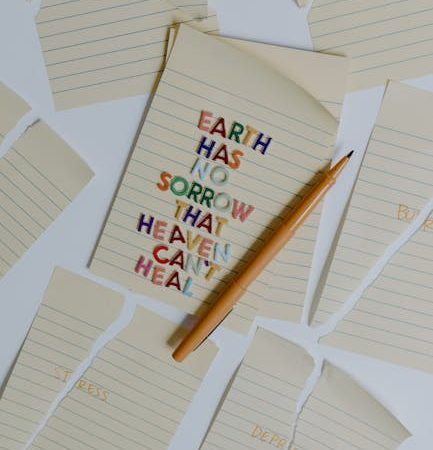 EARTH
HAS
NO
SORROW
THAT
HEAVEN
CAN'T
HEAL
STRESS
DEPR